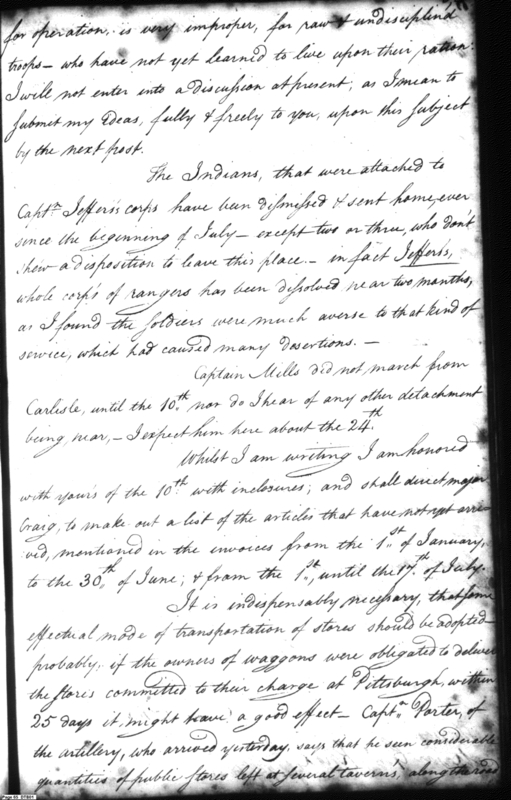 for operation, is very improper, for raw & undisciplin'd
troops - who have not yet learned to live upon their ration.
I will not enter into a discussion at present, as I mean to
submit my Ideas, fully & freely to you, upon this subject
by the next post.
The Indians, that were attached to
Capt.n Jeffers's corps have been dismissed & sent home, ever
since the beginning of July - except two or three, who don't
shew a disposition to leave this place. - in fact Jeffers's,
whole corps of rangers has been dissolved near two months,
as I found the soldiers were much averse to that kind of
service, which had caused many desertions. -
Captain Mills did not march from
Carlisle, until the 10.th nor do I hear of any other detachment
being near, - I expect him here about the 24.th
Whilst I am writing I am honored
with your's of the 10.th with inclosures; and shall direct major
Craig, to make out a list of the articles that have not yet arri-
ved, mentioned in the invoices from the 1.st of January,
to the 30.th of June; & from the 1.st, until the 17.th of July.
It is indispensably necessary, that some
effectual mode of transportation of stores should be adopted -
probably, if the owners of waggons were obligated to deliver
the stores committed to their charge at Pittsburgh, within
25 days it might have a good effect - Capt.n Porter, of
the artillery, who arrived yesterday, says that he seen considerable
quantities of public stores left at several taverns, along the road